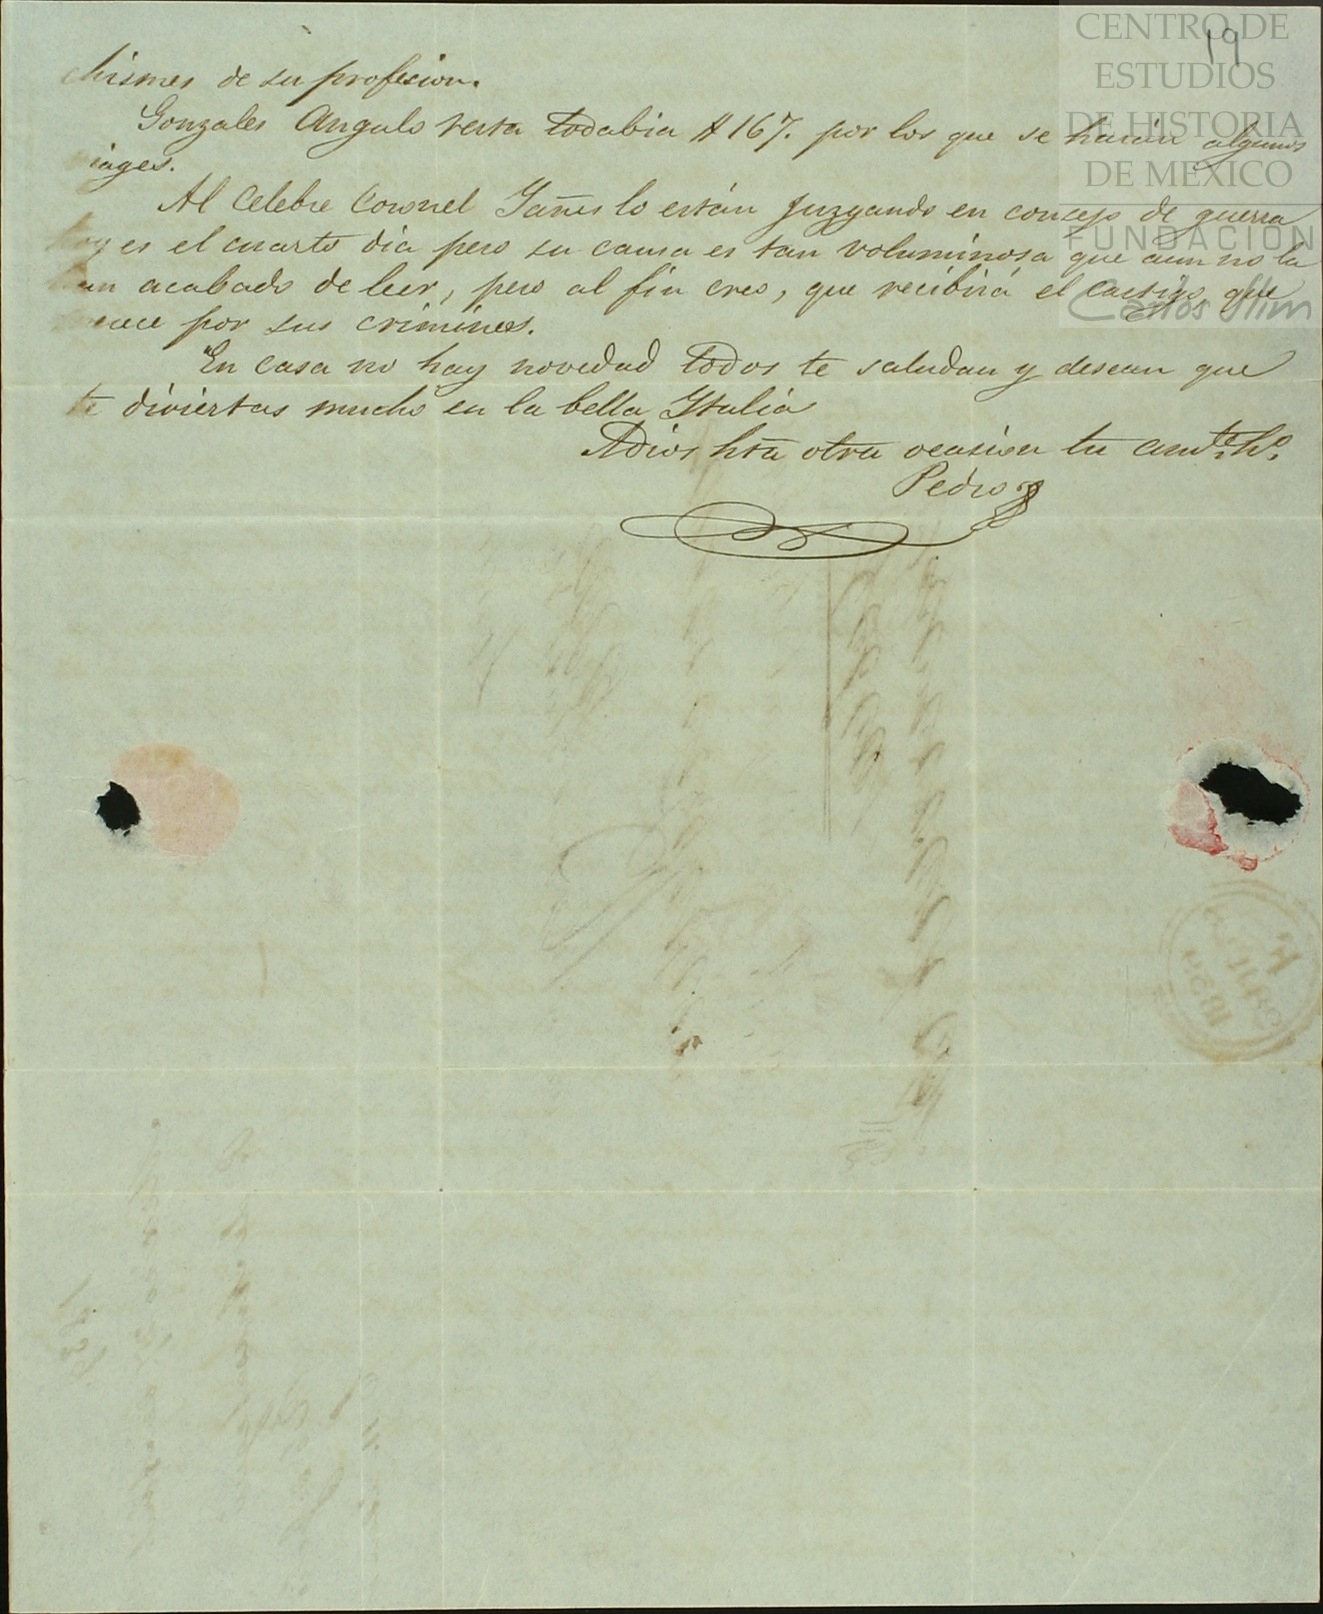 19
CENTRO DE
ESTUDIOS
DE HISTORIA
DE MEXICO
FUNDACIÓN
Carlos Slim
chismes de su profesion.
Gonzales Angulo resta todabia $167. por los que se harán algunos
iages.
Al Celebre Coronel Yañes lo están Juzgando en concejo de guerra
hoy es el cuarto dia pero su causa es tan voluminosa que aun no la
han acabado de leer, pero al fin creo, que recibirá el castigo que
merece por sus crimines.
En casa no hay novedad todos te saludan y desean que
te diviertas mucho en la bella Italia
Adios hta otra ocasion tu amte. ho.
Pedro